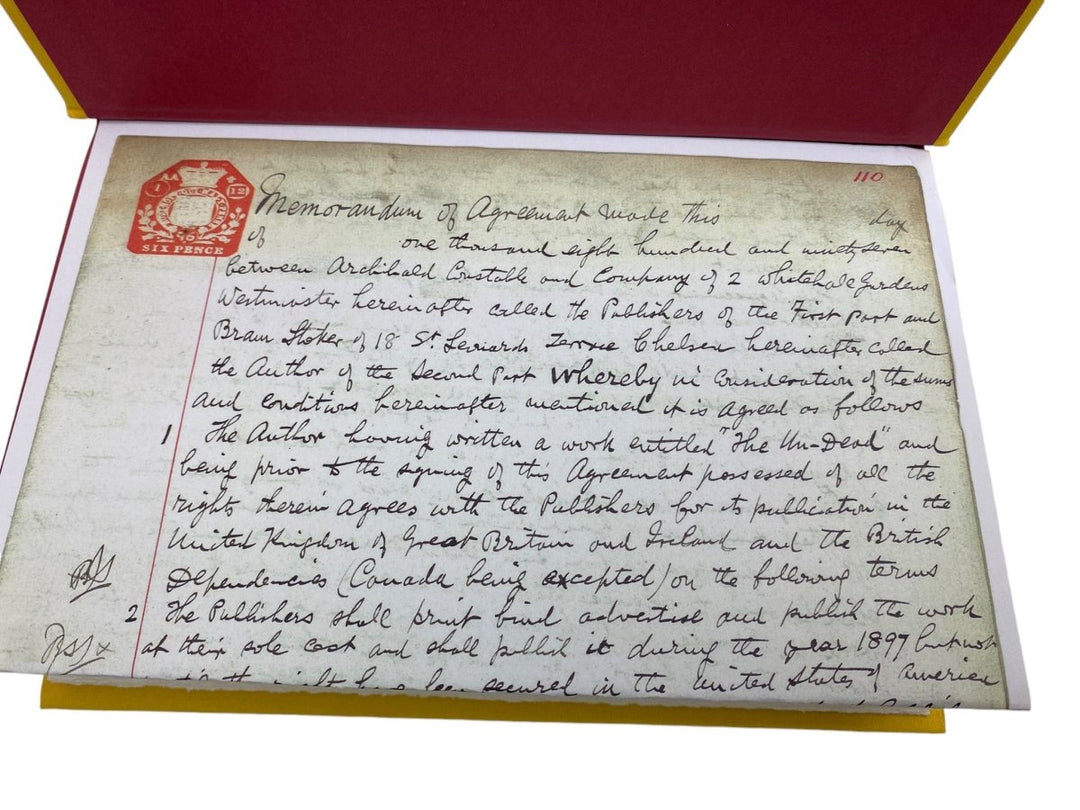 110
1 12
SIX PENCE
Memorandum of Agreement made this day
of one thousand eight hundred and ninety seven
between Archibald Constable and Company of 2 Whitehall Gardens
Westminster hereinafter called the Publishers of the First part and
Bram Stoker of 18 St Leonards Terrace Chelsea hereinafter called
the Author of the Second Part Whereby in Consideration of the sums
and conditions hereinafter mentioned it is agreed as follows
1 The Author having written a work entitled "The Un-Dead" and
being prior to the signing of this Agreement possessed of all the
rights therein agrees with the Publishers for its publication in the
United Kingdom of Great Britain and Ireland and the British
BS
Dependencies (Canada being excepted) on the following terms
2 The Publishers shall print bind advertise and publish the work
at their sole cost and shall publish it during the year 1897 but not
have been secured in the United States of America